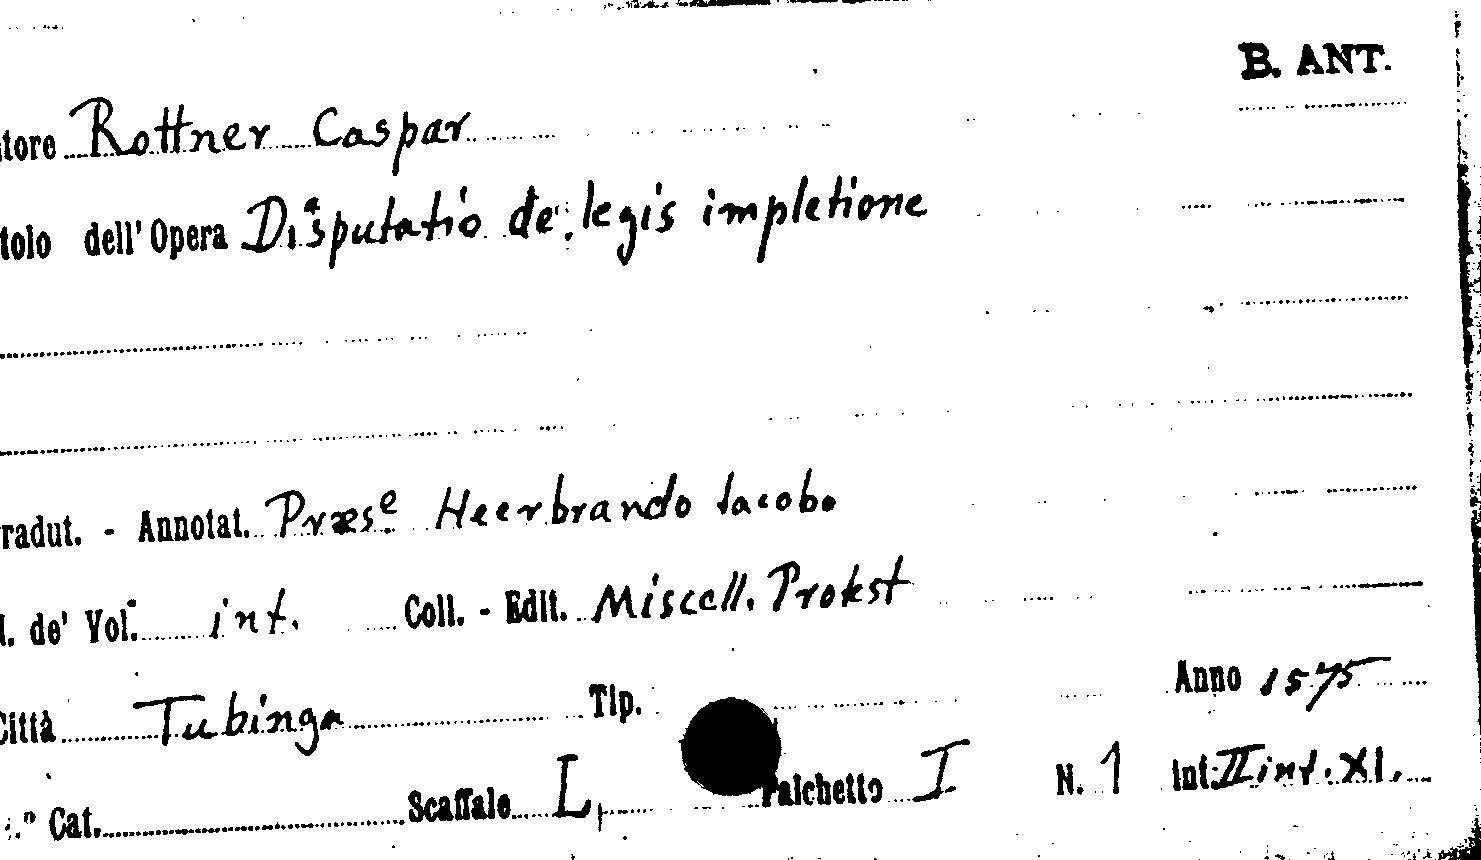 B. ANT.
tore Rottner Caspar
tolo dell' Opera Disputatio de legis impletione
radut. - Annotat. Præsᵉ Heerbrando Iacobo
l. de' Vol. int. Coll. - Edit. Miscell. Protest
Città Tubinga Tip. Anno 1575
.° Cat. Scaffale L, Palchetto I N. 1 Int. II int. XI.